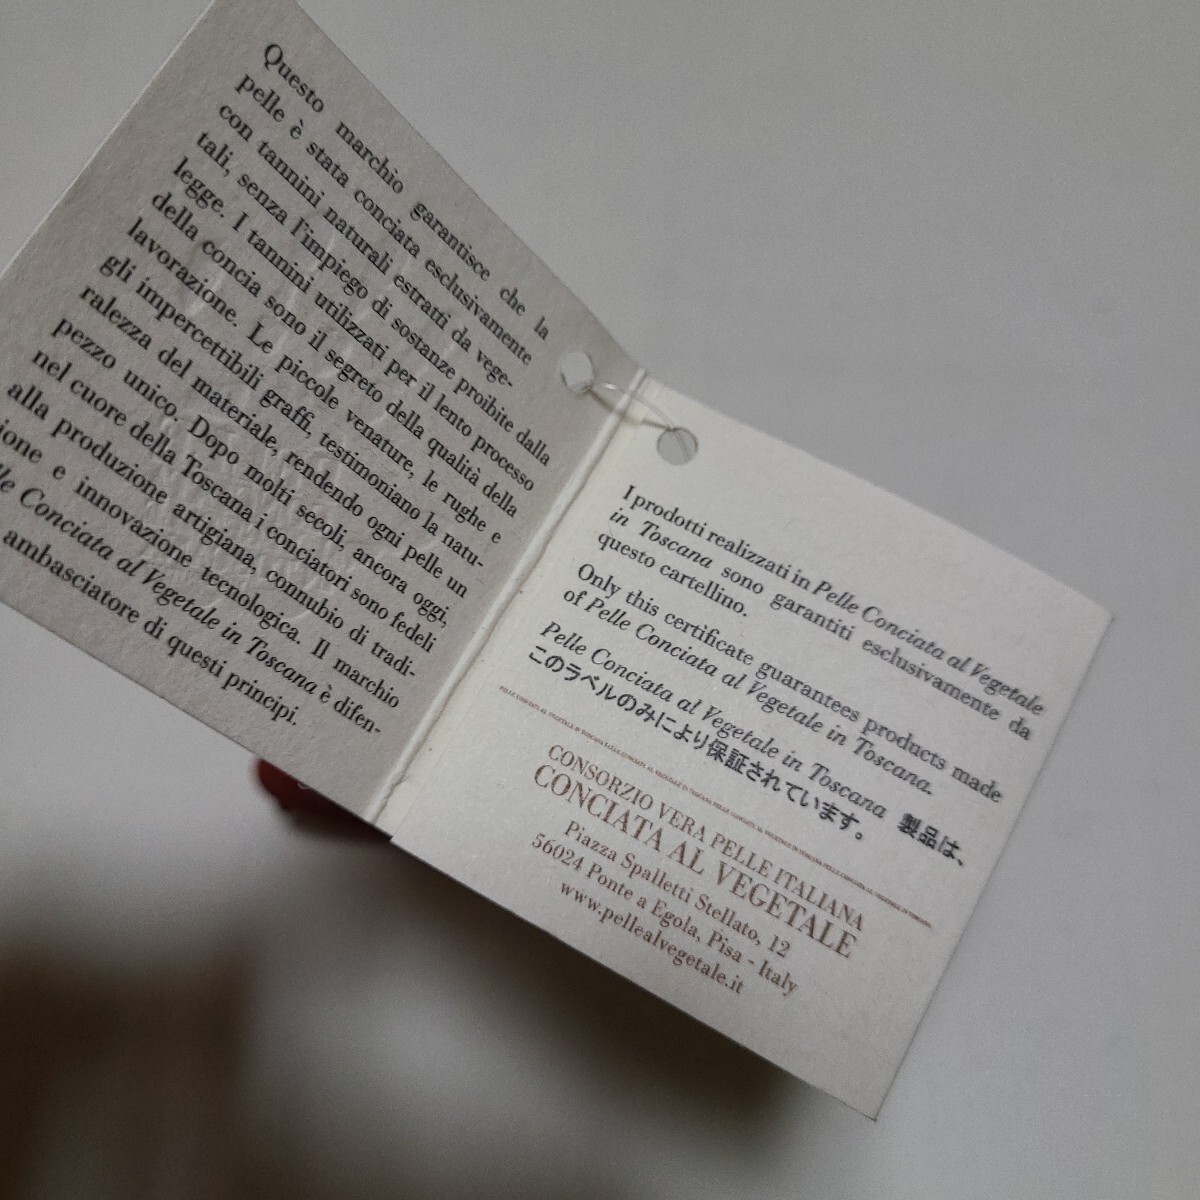 Questo marchio garantisce che la
pelle è stata conciata esclusivamente
con tannini naturali estratti da vege-
tali, senza l'impiego di sostanze proibite dalla
legge. I tannini utilizzati per il lento processo
della concia sono il segreto della qualità della
lavorazione. Le piccole venature, le rughe e
gli impercettibili graffi, testimoniano la natu-
ralezza del materiale, rendendo ogni pelle un
pezzo unico. Dopo molti secoli, ancora oggi,
nel cuore della Toscana i conciatori sono fedeli
alla produzione artigiana, connubio di tradi-
ione e innovazione tecnologica. Il marchio
lle Conciata al Vegetale in Toscana è difen-
ambasciatore di questi principi.
I prodotti realizzati in Pelle Conciata al Vegetale
in Toscana sono garantiti esclusivamente da
questo cartellino.
Only this certificate guarantees products made
of Pelle Conciata al Vegetale in Toscana.
Pelle Conciata al Vegetale in Toscana 製品は、
このラベルのみにより保証されています。
CONSORZIO VERA PELLE ITALIANA
CONCIATA AL VEGETALE
Piazza Spalletti Stellato, 12
56024 Ponte a Egola, Pisa - Italy
www.pellealvegetale.it